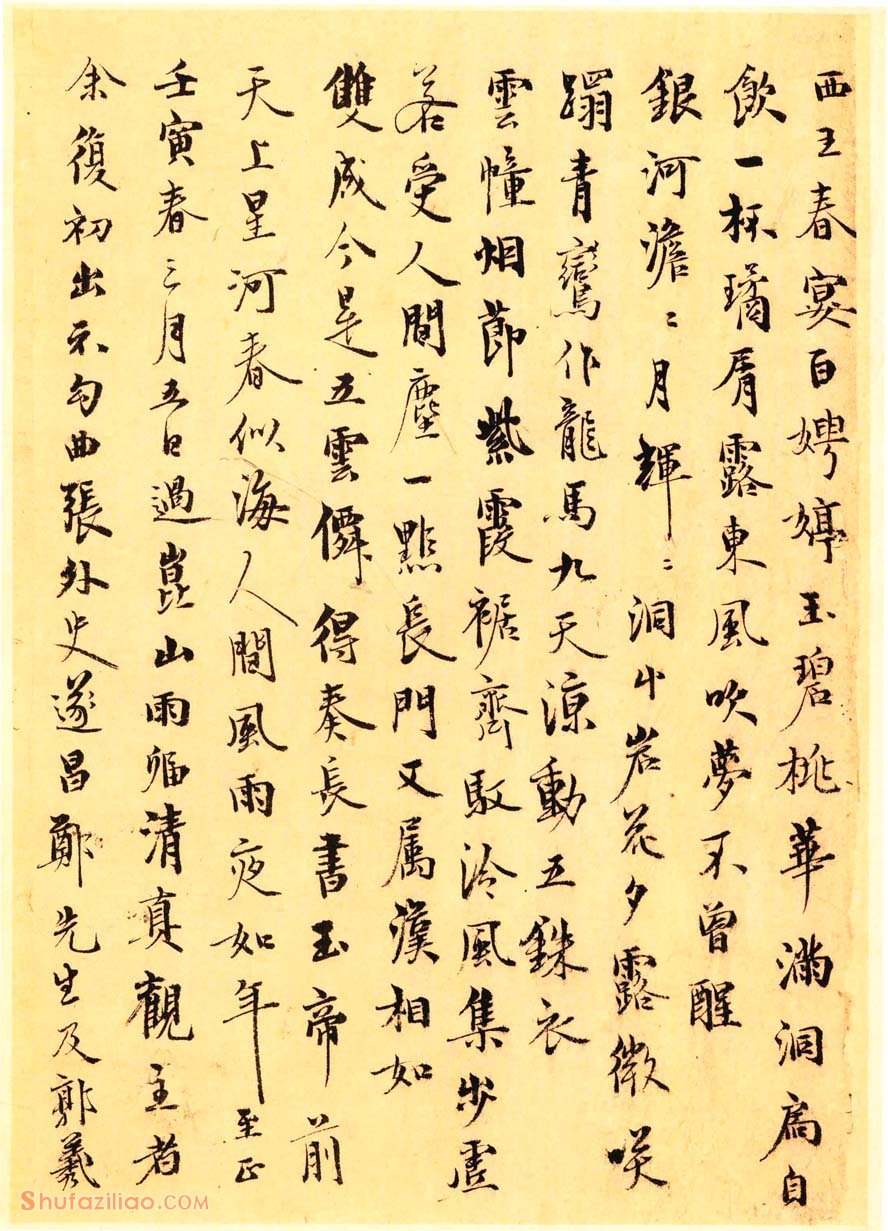 西王春宴百娉婷玉碧桃華滿洞扃自
飲一杯璚屑露東風吹夢不曾醒
銀河澹〻月輝〻洞中岩花夕露微笑
躡青鸞作龍馬九天涼動五銖衣
雲幢烟節紫霞裾齊馭泠風集步虛
若受人間塵一點長門又屬漢相如
雙成今是五雲僊得奏長書玉帝前
天上星河春似海人間風雨夜如年至正
壬寅春三月五日過崑山雨宿清真觀主者
余復初出示句曲張外史遂昌鄭先生及郭羲
Shufaziliao.COM